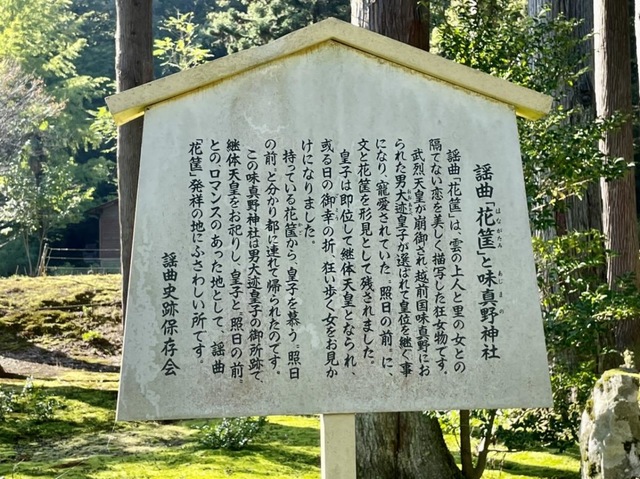 謡曲「花筐」と味真野神社
はながたみ
あじま
謡曲「花筐」は、雲の上人と里の女との
隔てない恋を美しく描写した狂女物です。
武烈天皇が崩御され越前国味真野にお
られた男大迹皇子が選ばれて皇位を継ぐ事
になり、寵愛されていた"照日の前"に、
文と花筐を形見として残されました。
皇子は即位して継体天皇となられ、
或る日の御幸の折、狂い歩く女をお見か
けになりました。
持っている花筐から、皇子を慕う"照日
の前"と分かり都に連れて帰られたのです。
この味真野神社は男大迹皇子の御所跡で、
継体天皇をお祀りし、皇子と"照日の前"
との、ロマンスのあった地として、謡曲
「花筐」発祥の地にふさわしい所です。
謡曲史跡保存会